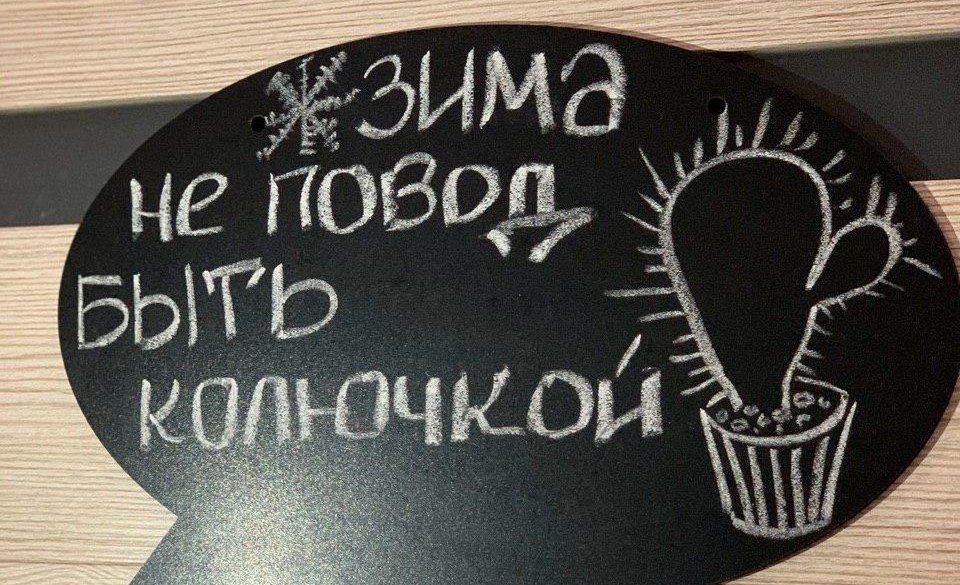 зима
не повод
быть
колючкой